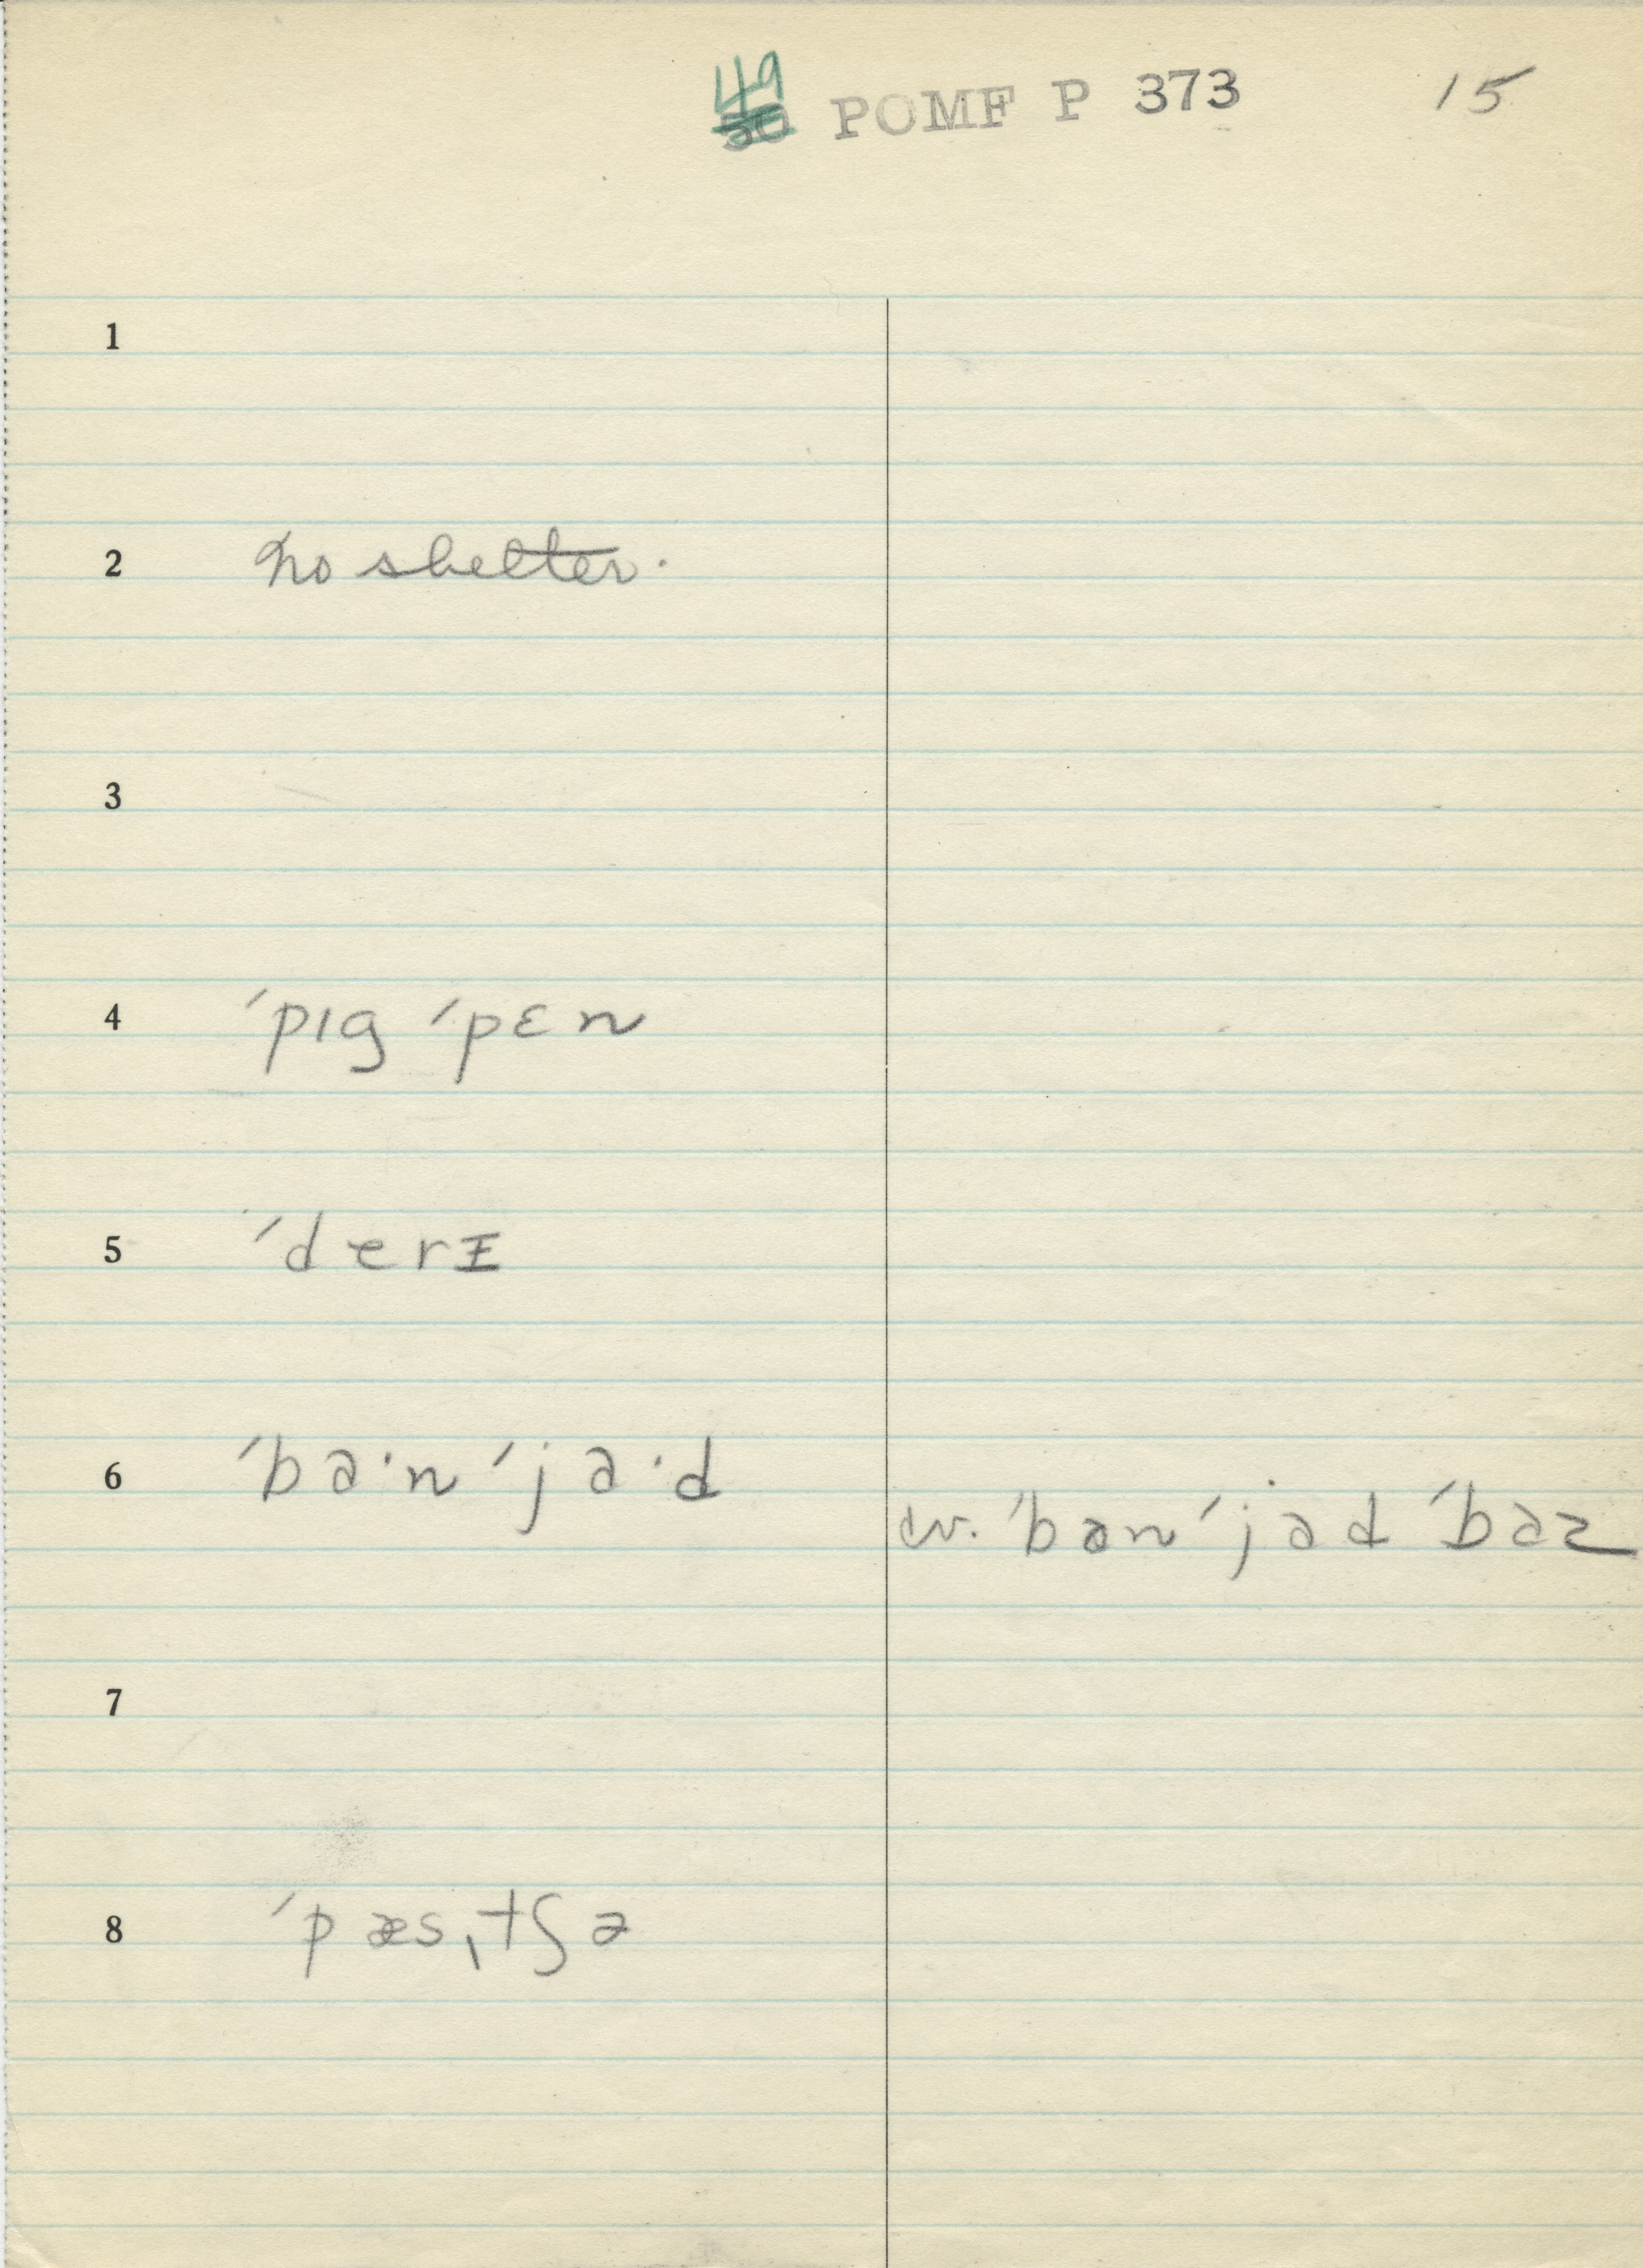 49 50 POMF P 373 15
1
2 no shelter.
3
4 ˈpɪg ˈpɛn
5 ˈderɪ
6 ˈba·n ˈja·d
cv. ˈban ˈjad ˈbaz
7
8 ˈpæsˌtʃə